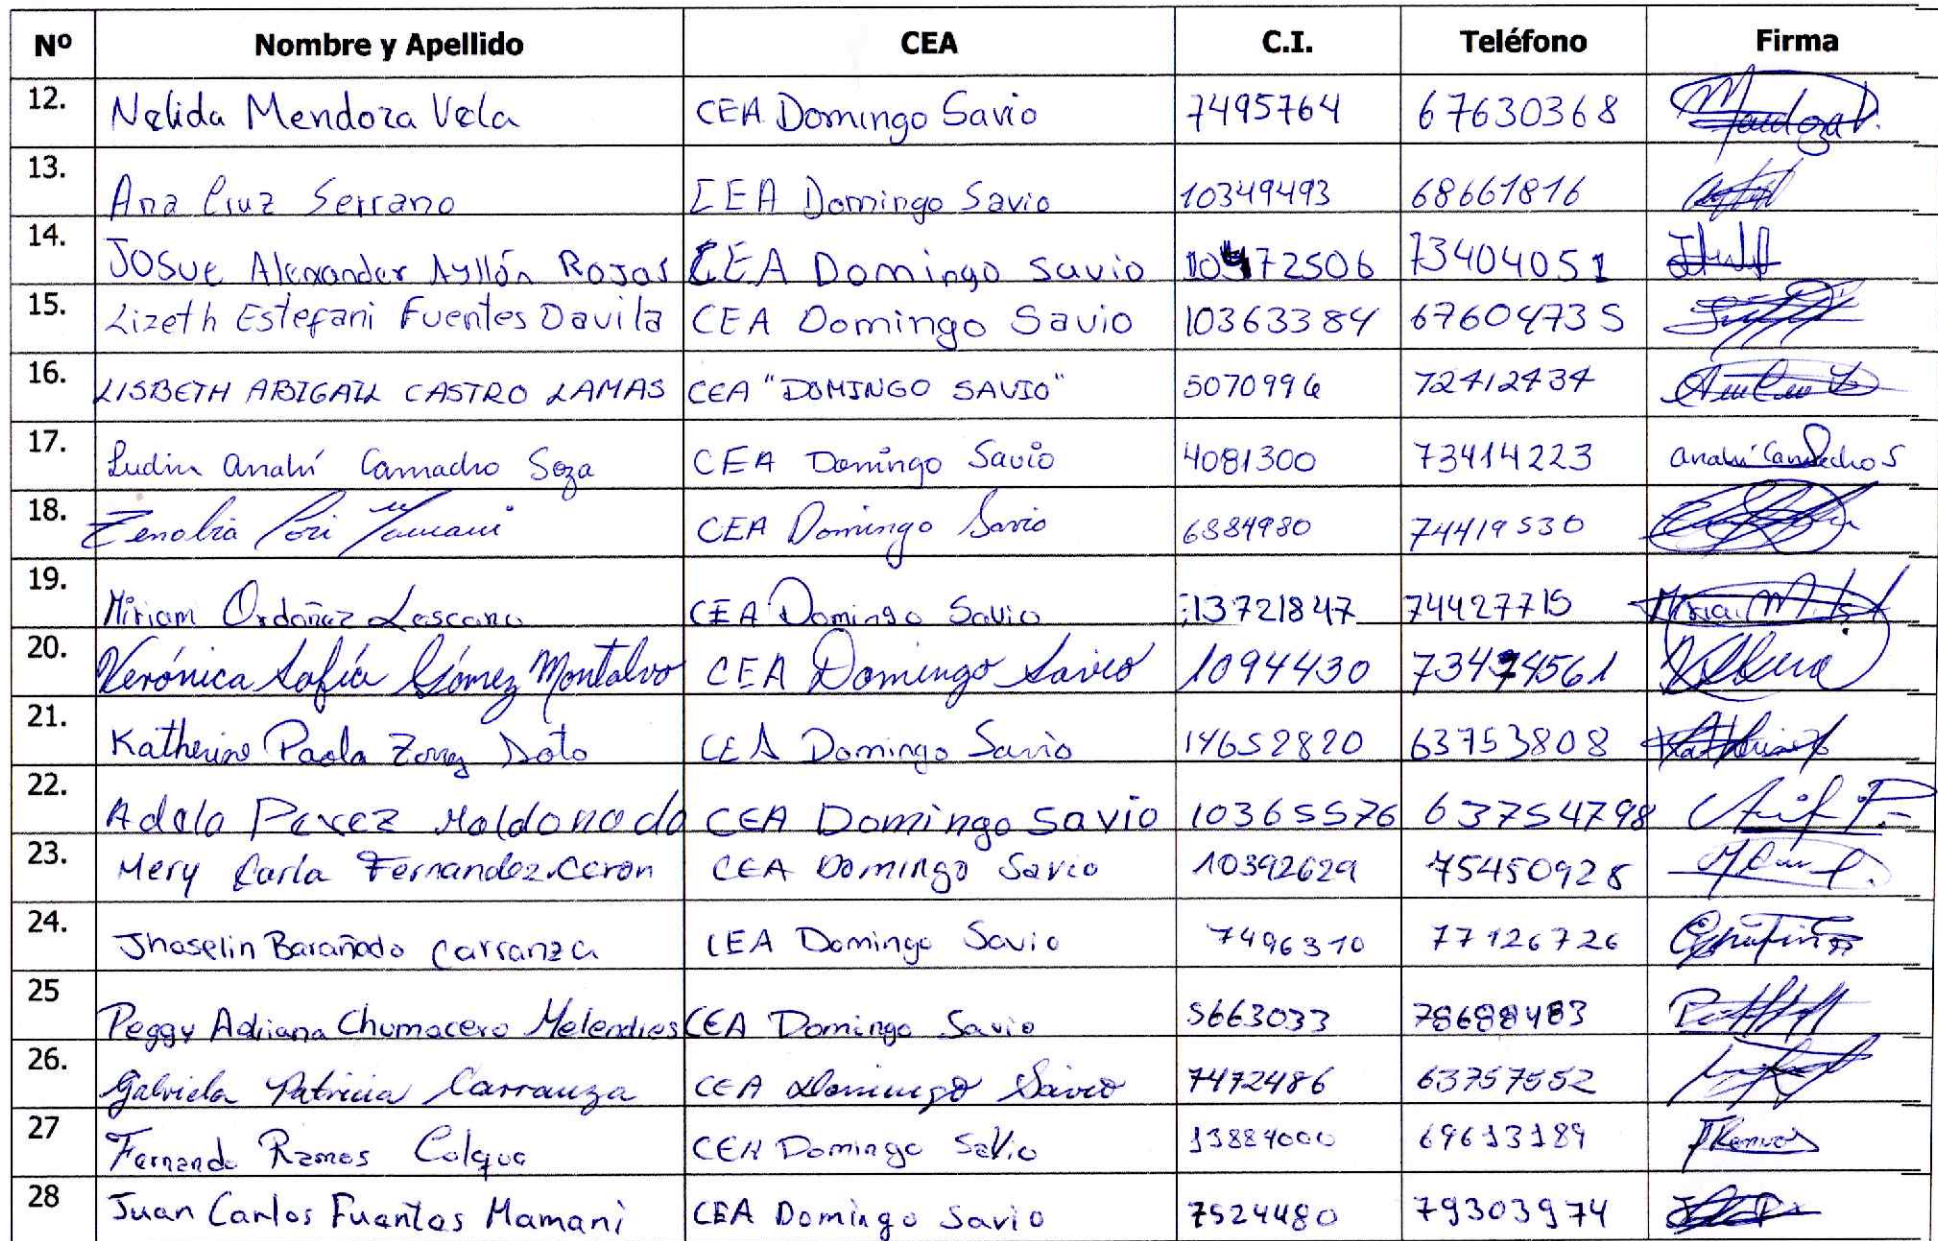 Nº Nombre y Apellido CEA C.I. Teléfono Firma
12. Nelida Mendoza Vela CEA Domingo Savio 7495764 67630368 Mendoza V.
13. Ana Cruz Serrano CEA Domingo Savio 10349493 68661816
14. Josue Alexander Ayllón Rojas CEA Domingo Savio 10472506 73404051
15. Lizeth Estefani Fuentes Davila CEA Domingo Savio 10363384 67604735
16. LISBETH ABIGAIL CASTRO LAMAS CEA "DOMINGO SAVIO" 5070996 72412434
17. Ludin Anahí Camacho Soza CEA Domingo Savio 4081300 73414223 Anahí Camacho S
18. Zenobia Cori Mamani CEA Domingo Savio 6684980 74419530
19. Miriam Ordoñez Lescano CEA Domingo Savio 13721847 74427715
20. Verónica Sofía Gómez Montalvo CEA Domingo Savio 1094430 73474561
21. Katherine Paola Zorrez Soto CEA Domingo Savio 14652820 63753808 Katherine
22. Adela Perez Maldonado CEA Domingo Savio 10365576 63754798
23. Mery Carla Fernandez Ceron CEA Domingo Savio 10392629 75450928
24. Jhoselin Barañado Carranza CEA Domingo Savio 7496310 77126726
25 Peggy Adriana Chumacero Melendres CEA Domingo Savio 5663033 78688483
26. Gabriela Patricia Carranza CEA Domingo Savio 7472486 63757552
27 Fernando Ramos Colque CEA Domingo Savio 13884000 69613189 FRamos
28 Juan Carlos Fuentes Mamani CEA Domingo Savio 7524480 79303974